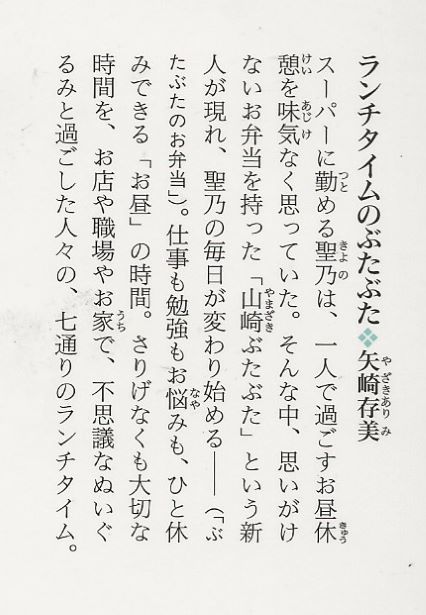 ランチタイムのぶたぶた❖矢崎存美
スーパーに勤める聖乃は、一人で過ごすお昼休
憩を味気なく思っていた。そんな中、思いがけ
ないお弁当を持った「山崎ぶたぶた」という新
人が現れ、聖乃の毎日が変わり始める――(「ぶ
たぶたのお弁当」)。仕事も勉強もお悩みも、ひと休
みできる「お昼」の時間。さりげなくも大切な
時間を、お店や職場やお家で、不思議なぬいぐ
るみと過ごした人々の、七通りのランチタイム。